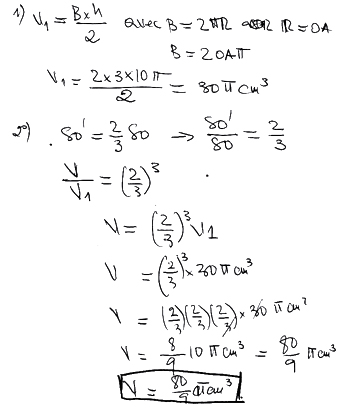 1) V₁ = B×h/2 avec B = 2πR R = OA
B = 2OAπ
V₁ = 2×3×10π/2 = 30πcm³
2°) . SO' = 2/3 SO → SO'/SO = 2/3
V/V₁ = (2/3)³ .
V = (2/3)³V1
V = (2/3)³ × 30πcm³
V = (2/3)(2/3)(2/3) × 30πcm³
V = 8/9 10πcm³ = 80/9 πcm³
V = 80/9 πcm³.